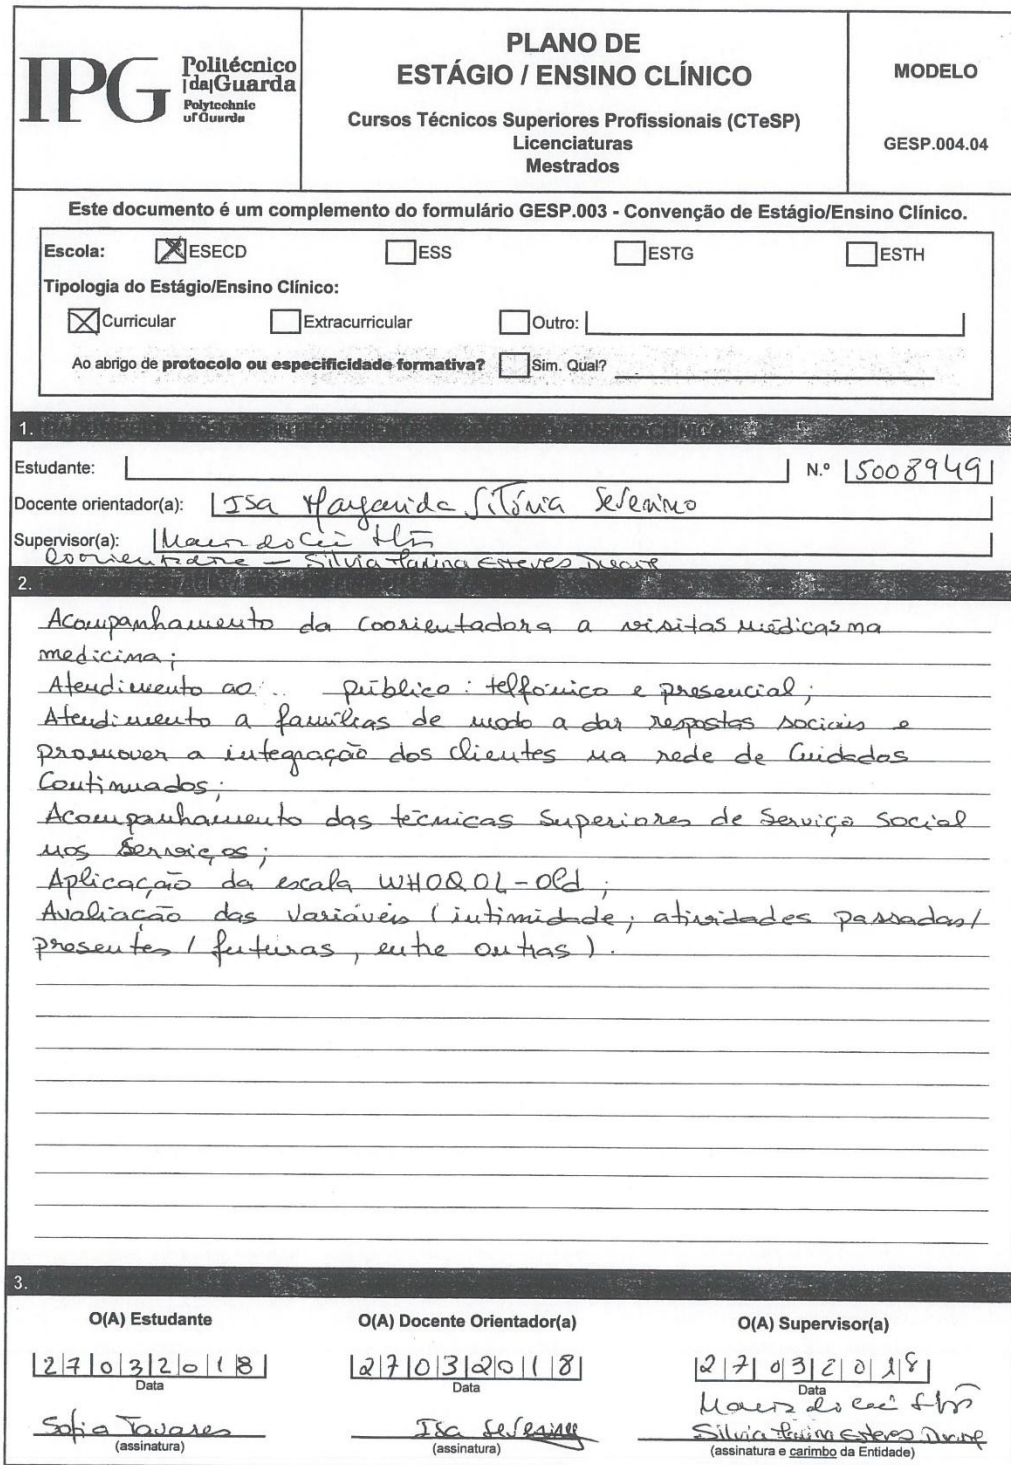 IPG Politécnico
da Guarda
Polytechnic
of Guarda
PLANO DE
ESTÁGIO / ENSINO CLÍNICO
Cursos Técnicos Superiores Profissionais (CTeSP)
Licenciaturas
Mestrados
MODELO
GESP.004.04
Este documento é um complemento do formulário GESP.003 - Convenção de Estágio/Ensino Clínico.
Escola: ESECD ESS ESTG ESTH
Tipologia do Estágio/Ensino Clínico:
Curricular Extracurricular Outro:
Ao abrigo de protocolo ou especificidade formativa? Sim. Qual?
1.
Estudante: N.º 5008949
Docente orientador(a): Isa Margarida Vitória Severino
Supervisor(a): do Céu
Coorientadora - Silvia Esteves Duarte
2.
Acompanhamento da Coorientadora a visitas médicas na
medicina;
Atendimento ao público: telfónico e presencial;
Atendimento a famílias de modo a dar respostas sociais e
promover a integração dos clientes na rede de Cuidados
Continuados;
Acompanhamento das técnicas Superiores de Serviço Social
nos Serviços;
Aplicação da escala WHOQOL-Old;
Avaliação das Variáveis (intimidade; atividades passadas/
presentes / futuras, entre outras).
3.
O(A) Estudante O(A) Docente Orientador(a) O(A) Supervisor(a)
27032018 27032018 27032018
Data Data Data
do Céu
Sofia Tavares Isa Severino Silvia Esteves Duarte
(assinatura) (assinatura) (assinatura e carimbo da Entidade)